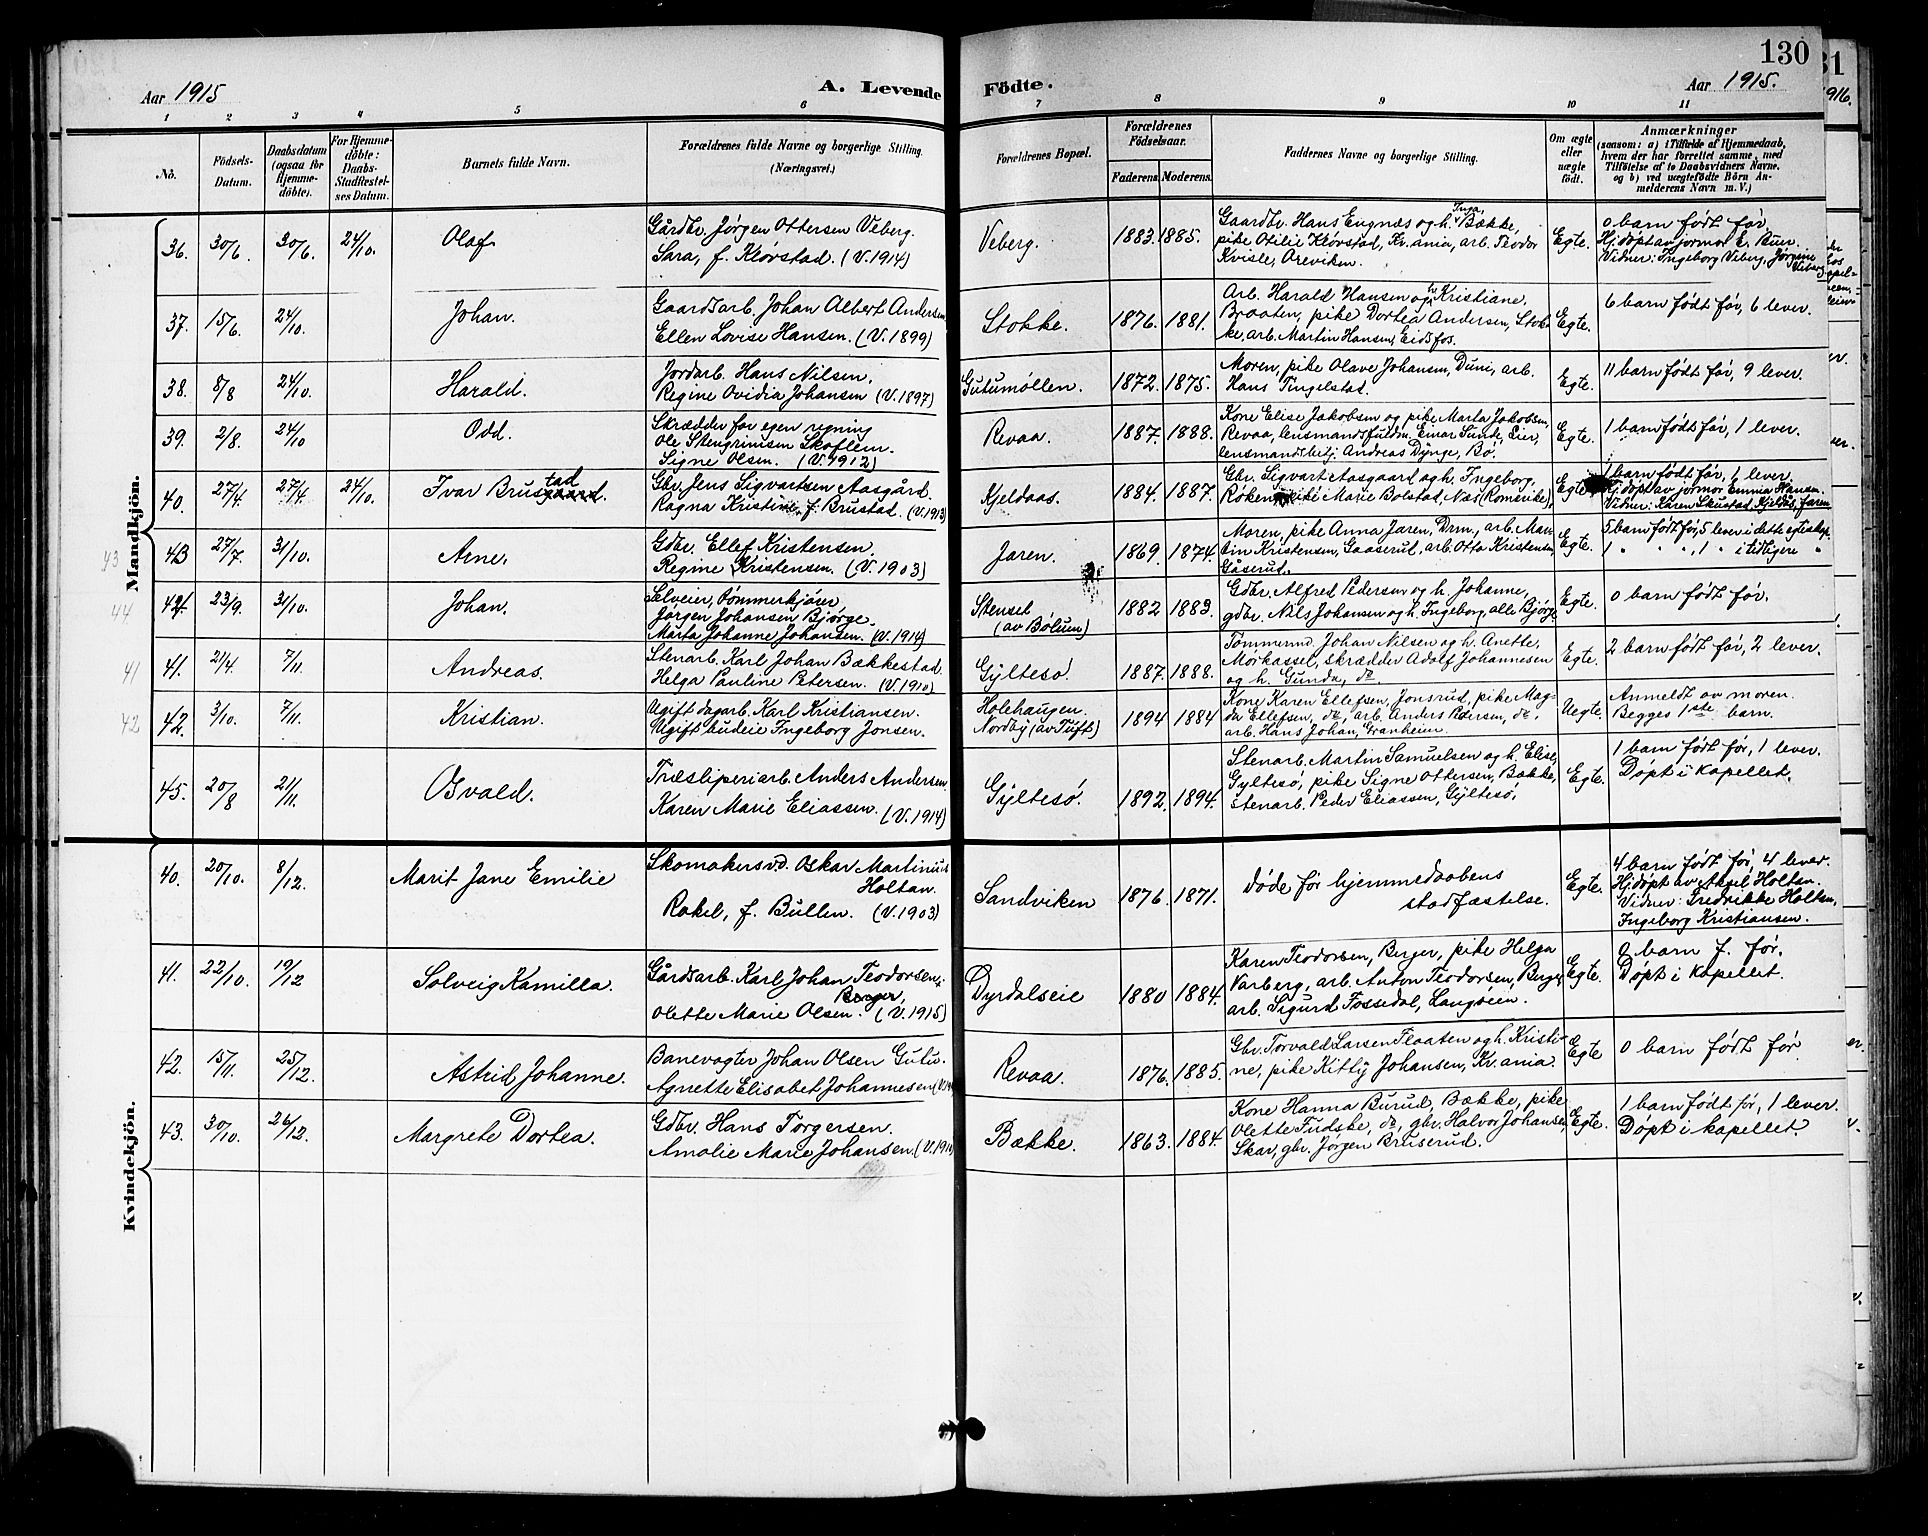 130
Aar 1915
A. Levende Födte.
Aar 1915.
1 2 3 4 5 6 7 8 9 10 11
No.
Födsels-
Datum.
Daabsdatum
(ogsaa for
Hjemme-
döbte).
For Hjemme-
döbte:
Daabs-
Stadfæstel-
ses Datum.
Barnets fulde Navn.
Forældrenes fulde Navne og borgerlige Stilling.
(Næringsvei.)
Forældrenes Bopæl.
Forældrenes
Födselsaar.
Faderens. Moderens.
Faddernes Navne og borgerlige Stilling.
Om ægte
eller
uægte
födt.
Anmærkninger
(saasom: a) i Tilfælde af Hjemmedaab,
hvem der har forrettet samme, med
Tilföielse af to Daabsvidners Navne,
og b) ved uægtefödte Börn An-
melderens Navn m. V.)
Mandkjön.
36. 30/6. 30/6. 24/10. Olaf.
Gårdbr. Jørgen Ottersen Veberg.
Sara, f. Kløvstad. (V. 1914)
Veberg. 1883. 1885.
Gaardbr. Hans Engnæs og h. Inga, Bække,
pike Otilie Kløvstad, Kr.ania, arb. Teodor
Kvisle, Oreviken.
Egte.
0 barn født før.
Hjdøpt av jormor E. Buer.
Vidner: Ingeborg Veberg, Jørgine
Veberg
37. 15/6. 24/10. Johan.
Gaardsarb. Johan Albert Andersen
Ellen Lovise Hansen. (V. 1899)
Stokke. 1876. 1881.
Arb. Harald Hansen og h. Kristiane,
Braaten, pike Dortea Andersen, Stok-
ke, arb. Martin Hansen, Eidsfos.
Egte.
6 barn født før, 6 lever.
38. 8/8 24/10. Harald.
Jordarb. Hans Nilsen.
Regine Ovidia Johansen (V. 1897)
Gutumøllen. 1872. 1875.
Moren, pike Olave Johansen, Duni, arb.
Hans Tingelstad.
Egte.
11 barn født før, 9 lever.
39. 2/8. 24/10 Odd.
Skrædder for egen regning
Ole Stengrimsen Skaflem.
Signe Olsen. (V. 1912)
Revaa. 1887. 1888.
Kone Elise Jakobsen og pike Marta Jakobsen,
Revaa, lensmandsfuldm. Einar Sunde, Eier,
lensmandsbetj. Andreas Dynge, Bø.
Egte.
1 barn født før, 1 lever.
40. 27/4 27/4. 24/10. Ivar Brusgaard. tad
Gbr. Jens Sigvartsen Aasgård.
Ragna Kristine, f. Brustad. (V. 1913)
Kjeldaas. 1884. 1887.
Gbr. Sigvart Aasgaard og h. Ingeborg,
Røken, pike Marie Bolstad, Næs (Romerike),
Egte
1 barn født før, 1 lever.
Hjdøpt av jormor Emma Hansen.
Vidner: Karen Skustad, Kjeldås, Jaren
43 43 27/7. 31/10. Arne.
Gdbr. Ellef Kristensen.
Regine Kristensen. (V. 1903)
Jaren. 1869. 1874.
Moren, pike Anna Jaren, Drm., arb. Mar-
tin Kristensen, Gaaserud, arb. Otto Kristensen,
Gåserud.
Egte.
5 barn født før, 5 lever i dette egteskap.
1 " " ", 1 " i tidligere "
44 42. 23/9. 31/10. Johan.
Selveier, Tømmerkjører
Jørgen Johansen Bjørge.
Marta Johanne Johansen. (V. 1914)
Stenset
(av Bølum) 1882 1883.
Gdbr. Alfred Pedersen og h. Johanne,
gdbr. Nils Johansen og h. Ingeborg, alle Bjørge
Egte.
0 barn født før.
41 41. 21/4. 7/11. Andreas.
Stenarb. Karl Johan Bækkestad.
Helga Pauline Petersen. (V. 1910)
Gyltesø. 1887. 1888.
Tømmermd. Johan Nilsen og h. Anette,
Mørkassel, skrædder Adolf Johannesen
og h. Gunda, do
Egte.
2 barn født før, 2 lever.
42 42. 3/10. 7/11. Kristian.
Ugift dagarb. Karl Kristiansen.
Ugift budeie Ingeborg Jonsen.
Holehaugen.
Nordby (av Tuft) 1894 1884
Kone Karen Ellefsen, Jonsrud, pike Mag-
da Ellefsen, do, arb. Anders Pedersen, do,
arb. Hans Johan, Granheim.
Uegte.
Anmeldt av moren.
Begges 1ste barn.
45. 20/8 21/11. Osvald.
Træsliperiarb. Anders Andersen
Karen Marie Eliassen. (V. 1914)
Gyltesø. 1892. 1894.
Stenarb. Martin Samuelsen og h. Elise,
Gyltesø, pike Signe Ottersen, Bække,
stenarb. Peder Eliassen, Gyltesø,
Egte.
1 barn født før, 1 lever.
Døpt i kapellet.
Kvindekjön.
40. 20/10. 8/12. Marit Jane Emilie
Skomakersvd. Oskar Martinius
Holtan.
Rakel, f. Bullen. (V. 1903)
Sandviken 1876. 1871.
Døde før hjemmedaabens
stadfæstelse.
Egte.
4 barn født før, 4 lever.
Hjdøpt av Aksel Holtan.
Vidner: Fredrikke Holtan,
Ingeborg Kristiansen.
41. 22/10. 19/12 Solveig Kamilla.
Gårdsarb. Karl Johan Teodorsen,
Berger,
Olette Marie Olsen. (V. 1915)
Dyrdalseie 1880 1884.
Karen Teodorsen, Berger, pike Helga
Varberg, arb. Anton Teodorsen, Berger,
arb. Sigurd Fossedal, Langøien.
Egte.
0 barn f. før.
Døpt i kapellet.
42. 15/11. 25/12. Astrid Johanne.
Banevogter Johan Olsen Gutu.
Agnette Elisabet Johannesen
Revaa. 1876. 1885.
Gbr. Torvald Larsen Flaaten og h. Kristi-
ne, pike Kitty Johansen, Kr.ania.
Egte
0 barn født før.
43. 30/10. 26/12. Margrete Dortea.
Gdbr. Hans Torgersen.
Amalie Marie Johansen.
Bække. 1863. 1884.
Kone Hanna Burud, Bække, pike
Olette Fudske, do, gbr. Halvor Johansen,
Skar, gbr. Jørgen Bruserud.
Egte.
1 barn født før, 1 lever.
Døpt i kapellet.